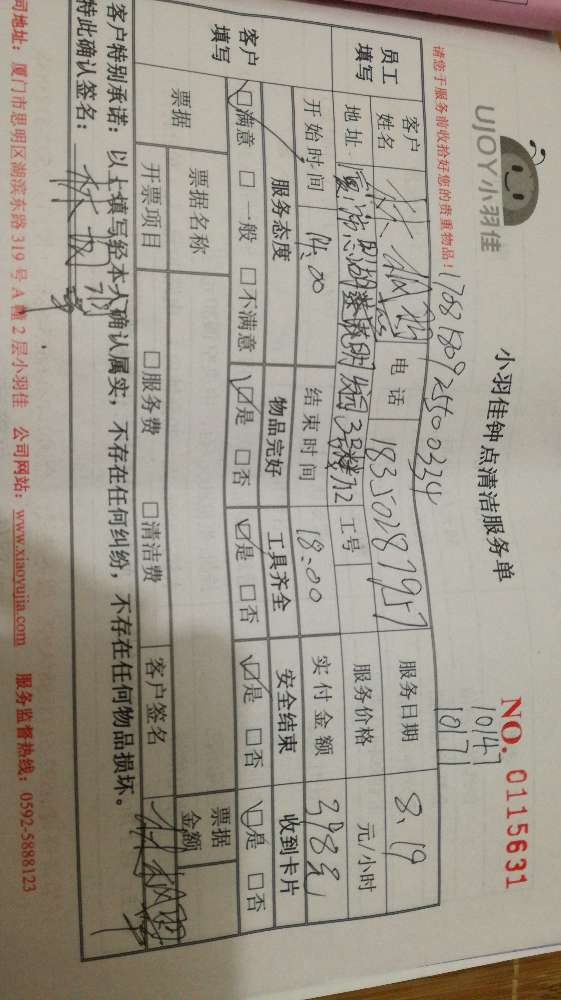 UJOY小羽佳
小羽佳钟点清洁服务单
NO. 0115631
10147
10171
请您于服务前收拾好您的贵重物品!
员工填写
客户姓名
电话 18350287957
服务日期 8.19
地址
3号楼712
工号
服务价格 元/小时
开始时间 14.00
结束时间 18:00
实付金额 398元
客户填写
服务态度 物品完好 工具齐全 安全结束 收到卡片
☑满意 □一般 □不满意 ☑是 □否 ☑是 □否 ☑是 □否 ☑是 □否
票据
票据名称
票据金额
开票项目 □服务费 □清洁费
客户签名
客户特别承诺:以上填写经本人确认属实,不存在任何纠纷,不存在任何物品损坏。
特此确认签名:
司地址:厦门市思明区湖滨东路319号A幢2层小羽佳 公司网站:www.xiaoyujia.com 服务监督热线:0592-5888123